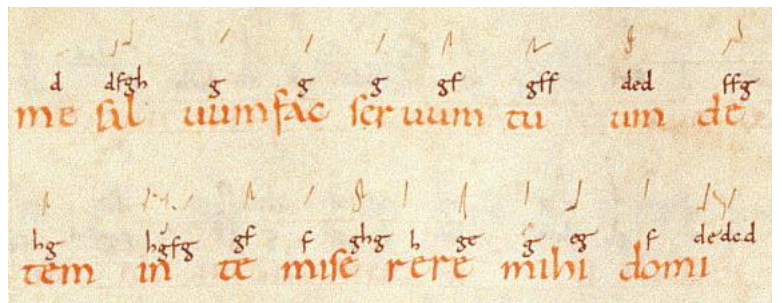 d dfgh g g g gf gff ded ffg
me ſal uum fac ſer uum tu um de
hg hgfg gf f ghg h ge g eg f dedcd
tem in te miſe rere mihi domi